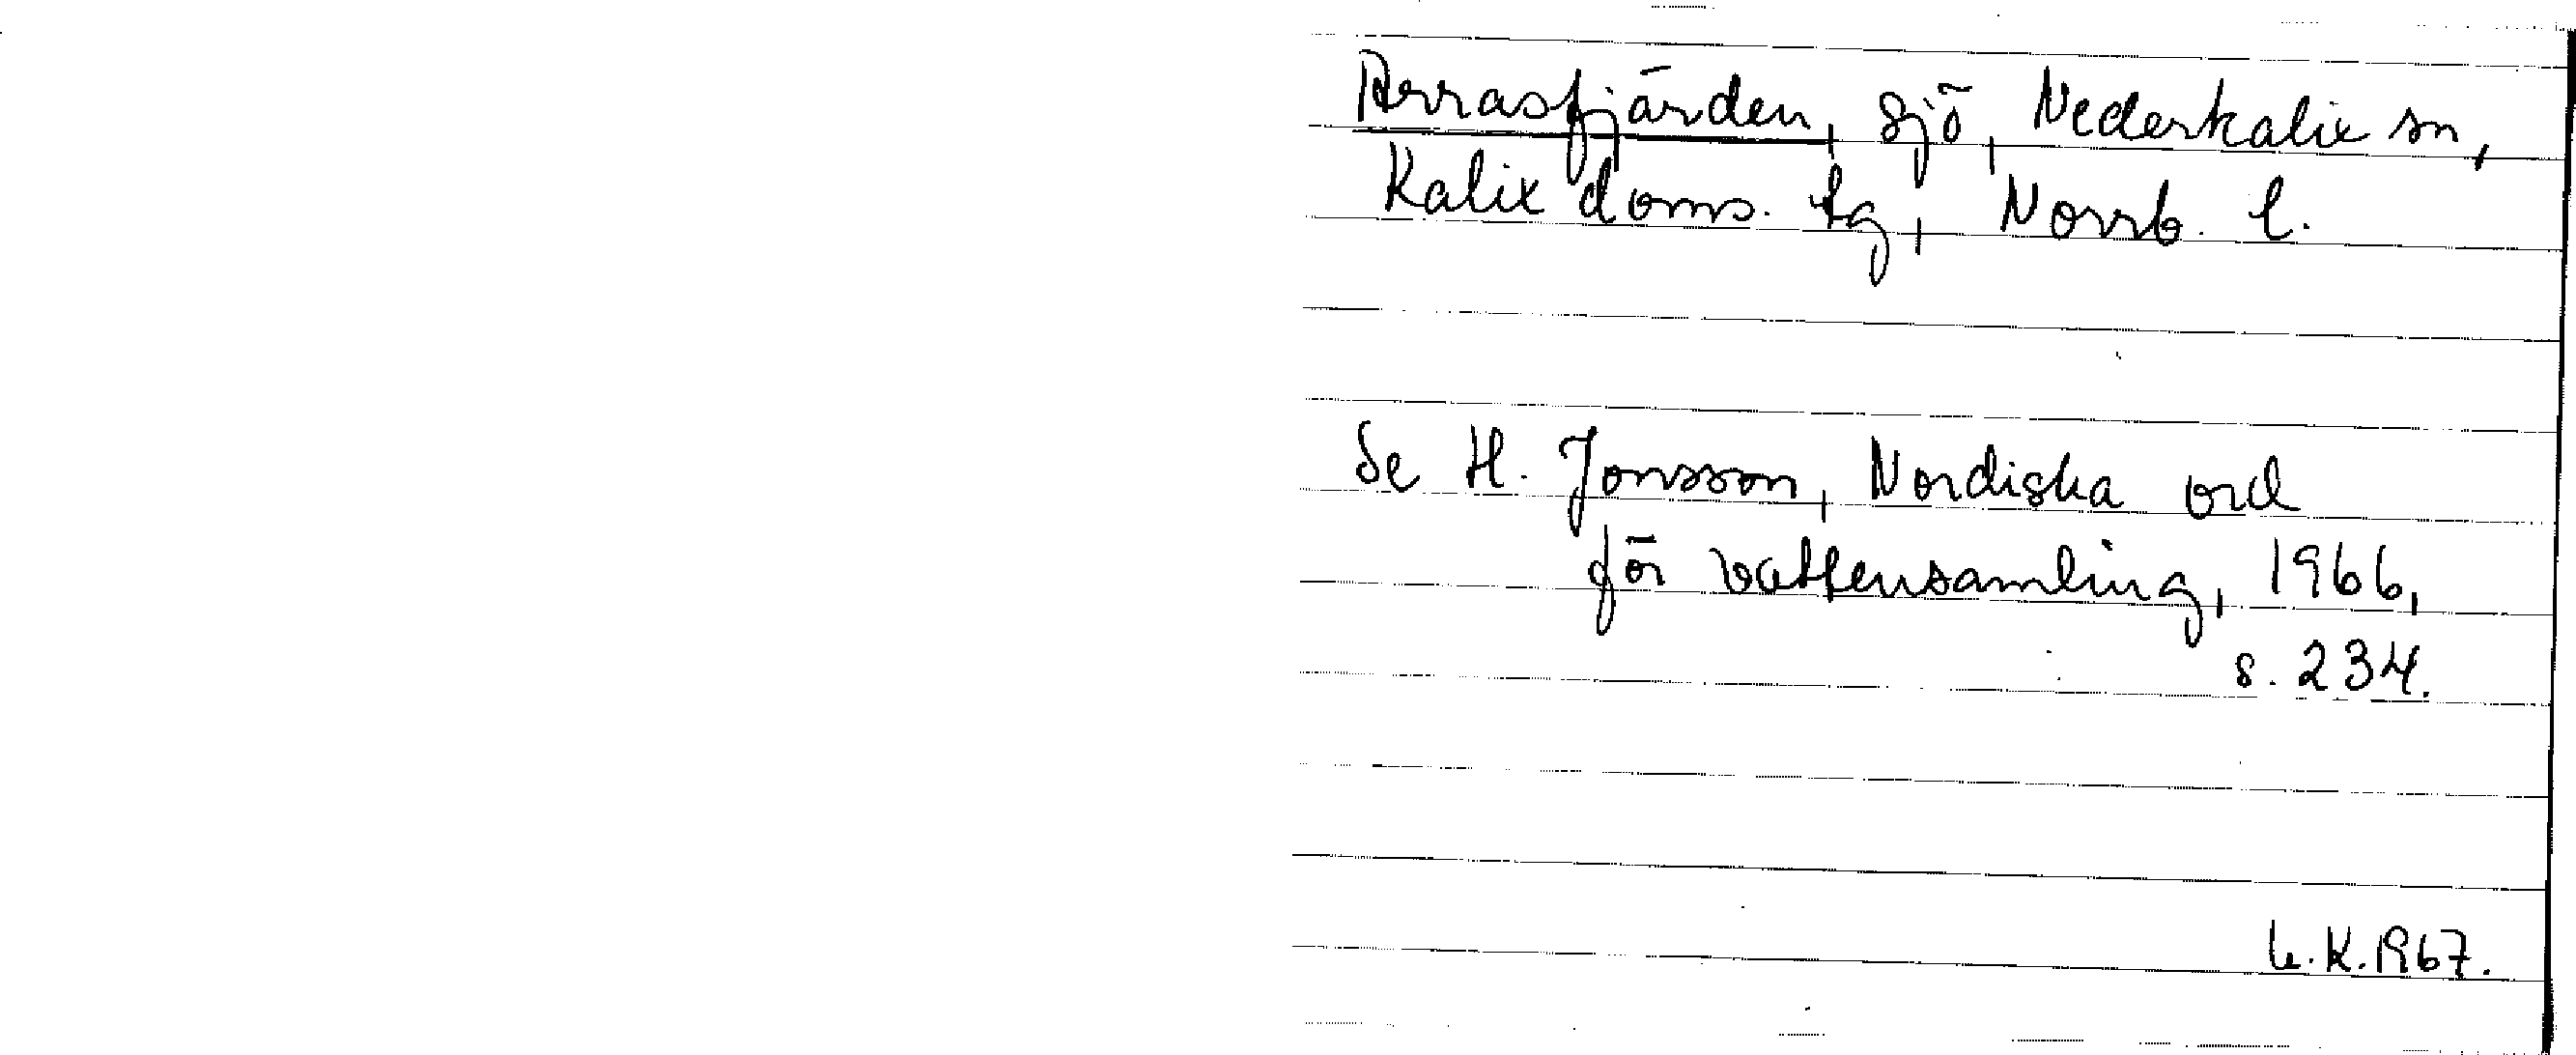 Arrasfjärden, sjö, Nederkalix sn,
Kalix doms. tg, Norrb. l.
Se H. Jonsson, Nordiska ord
för vattensamling, 1966,
s. 234.
K. 1967.